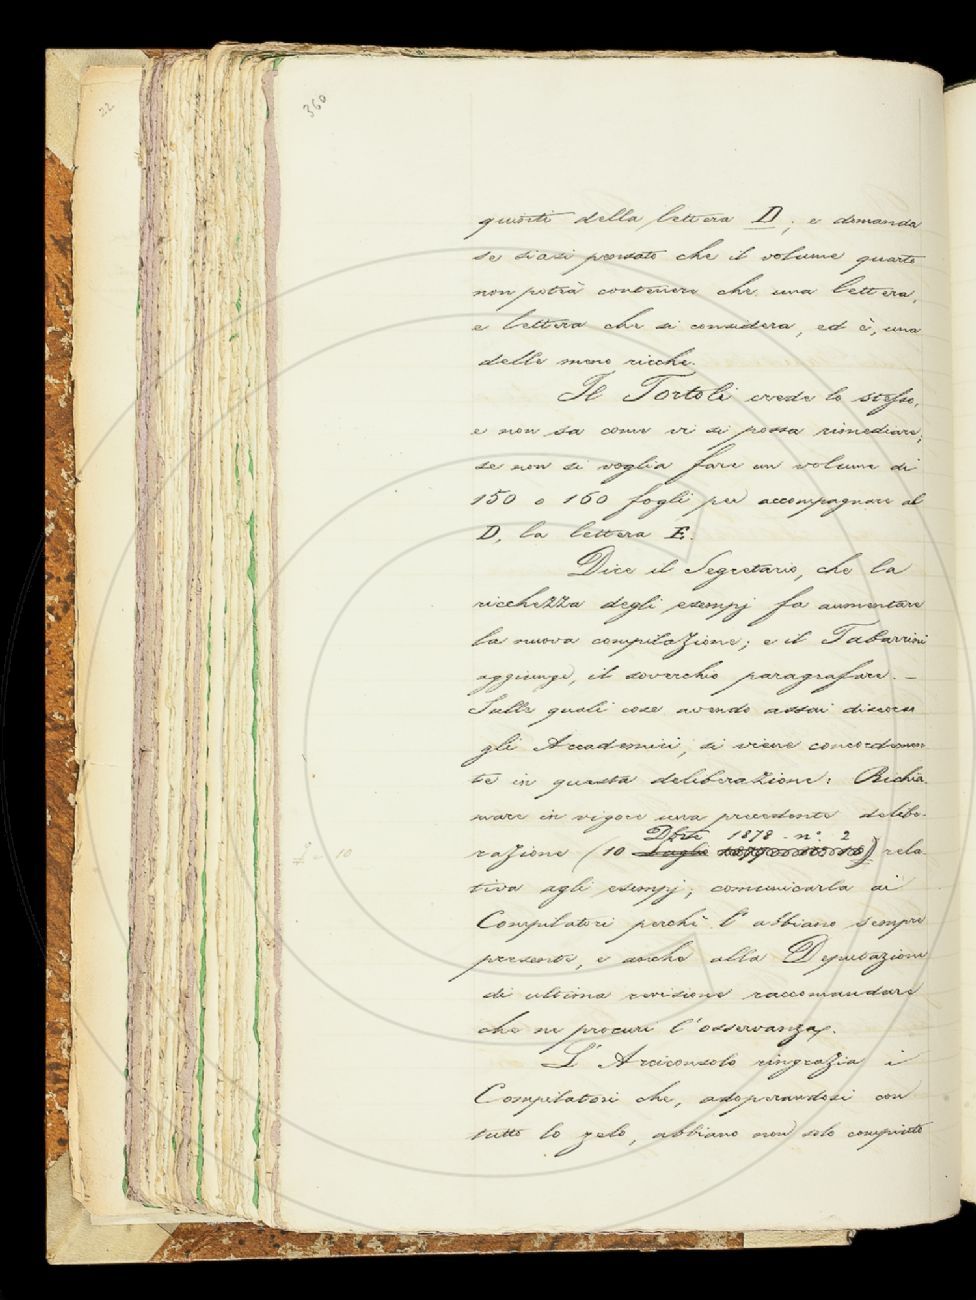 22
360
quisiti della lettera D; e domanda
se siasi pensato che il volume quarto
non potrà contenere che una lettera,
e lettera che si considera, ed è, una
delle meno ricche.
Il Tortoli crede lo stesso,
e non sa come vi si possa rimediare,
se non si voglia fare un volume di
150 o 160 fogli per accompagnare al
D, la lettera E.
Dice il Segretario, che la
ricchezza degli esempj fa aumentare
la nuova compilazione; e il Tabarrini
aggiunge, il soverchio paragrafare. —
Sulle quali cose avendo assai discorso
gli Accademici, si viene concordemen-
te in questa deliberazione: Richia-
mare in vigore una precedente delibe-
Dbre 1878 - n.° 2
razione (10 Luglio) rela-
tiva agli esempj; comunicarla ai
Compilatori perchè l'abbiano sempre
presente, e anche alla Deputazione
di ultima revisione raccomandare
che ne procuri l'osservanza.
L'Arciconsolo ringrazia i
Compilatori che, adoperandosi con
tutto lo zelo, abbiano non solo compiuto